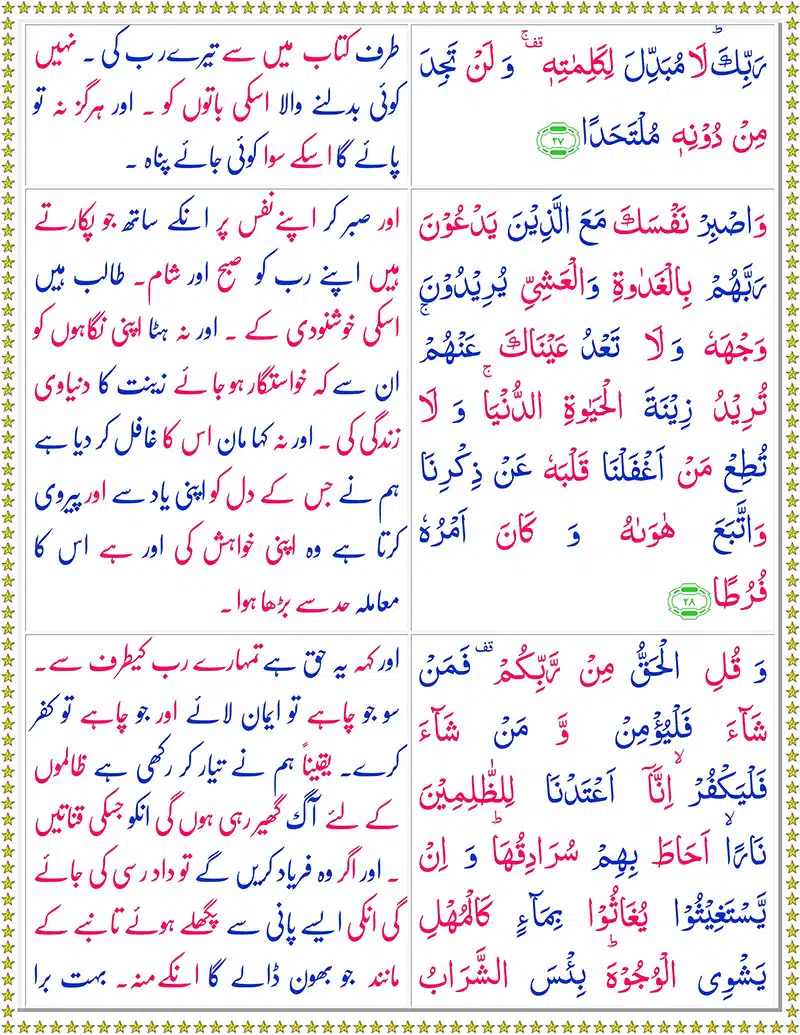 رَبِّكَ ؕ لَا مُبَدِّلَ لِكَلِمٰتِهٖ ۚ قف وَ لَنْ تَجِدَ
مِنْ دُوْنِهٖ مُلْتَحَدًا ۲۷
طرف کتاب میں سے تیرے رب کی ۔ نہیں
کوئی بدلنے والا اسکی باتوں کو ۔ اور ہرگز نہ تو
پائے گا اسکے سوا کوئی جائے پناہ ۔
وَاصْبِرْ نَفْسَكَ مَعَ الَّذِيْنَ يَدْعُوْنَ
رَبَّهُمْ بِالْغَدٰوةِ وَالْعَشِيِّ يُرِيْدُوْنَ
وَجْهَهٗ وَلَا تَعْدُ عَيْنَاكَ عَنْهُمْ ۚ
تُرِيْدُ زِيْنَةَ الْحَيٰوةِ الدُّنْيَا ۚ وَ لَا
تُطِعْ مَنْ اَغْفَلْنَا قَلْبَهٗ عَنْ ذِكْرِنَا
وَاتَّبَعَ هَوٰىهُ وَ كَانَ اَمْرُهٗ
فُرُطًا ۲۸
اور صبر کر اپنے نفس پر انکے ساتھ جو پکارتے
ہیں اپنے رب کو صبح اور شام۔ طالب ہیں
اسکی خوشنودی کے ۔ اور نہ ہٹا اپنی نگاہوں کو
ان سے کہ خواستگار ہو جائے زینت کا دنیاوی
زندگی کی ۔ اور نہ کہا مان اس کا غافل کر دیا ہے
ہم نے جس کے دل کو اپنی یاد سے اور پیروی
کرتا ہے وہ اپنی خواہش کی اور ہے اس کا
معاملہ حد سے بڑھا ہوا ۔
وَ قُلِ الْحَقُّ مِنْ رَّبِّكُمْ قف فَمَنْ
شَآءَ فَلْيُؤْمِنْ وَّ مَنْ شَآءَ
فَلْيَكْفُرْ ۙ اِنَّاۤ اَعْتَدْنَا لِلظّٰلِمِيْنَ
نَارًا ۙ اَحَاطَ بِهِمْ سُرَادِقُهَا ؕ وَ اِنْ
يَّسْتَغِيْثُوْا يُغَاثُوْا بِمَآءٍ كَالْمُهْلِ
يَشْوِى الْوُجُوْهَ ؕ بِئْسَ الشَّرَابُ
اور کہہ یہ حق ہے تمہارے رب کیطرف سے۔
سو جو چاہے تو ایمان لائے اور جو چاہے تو کفر
کرے۔ یقیناً ہم نے تیار کر رکھی ہے ظالموں
کے لئے آگ گھیر رہی ہوں گی انکو جسکی قناتیں
۔ اور اگر وہ فریاد کریں گے تو داد رسی کی جائے
گی انکی ایسے پانی سے پگھلے ہوئے تانبے کے
مانند جو بھون ڈالے گا انکے منہ۔ بہت برا